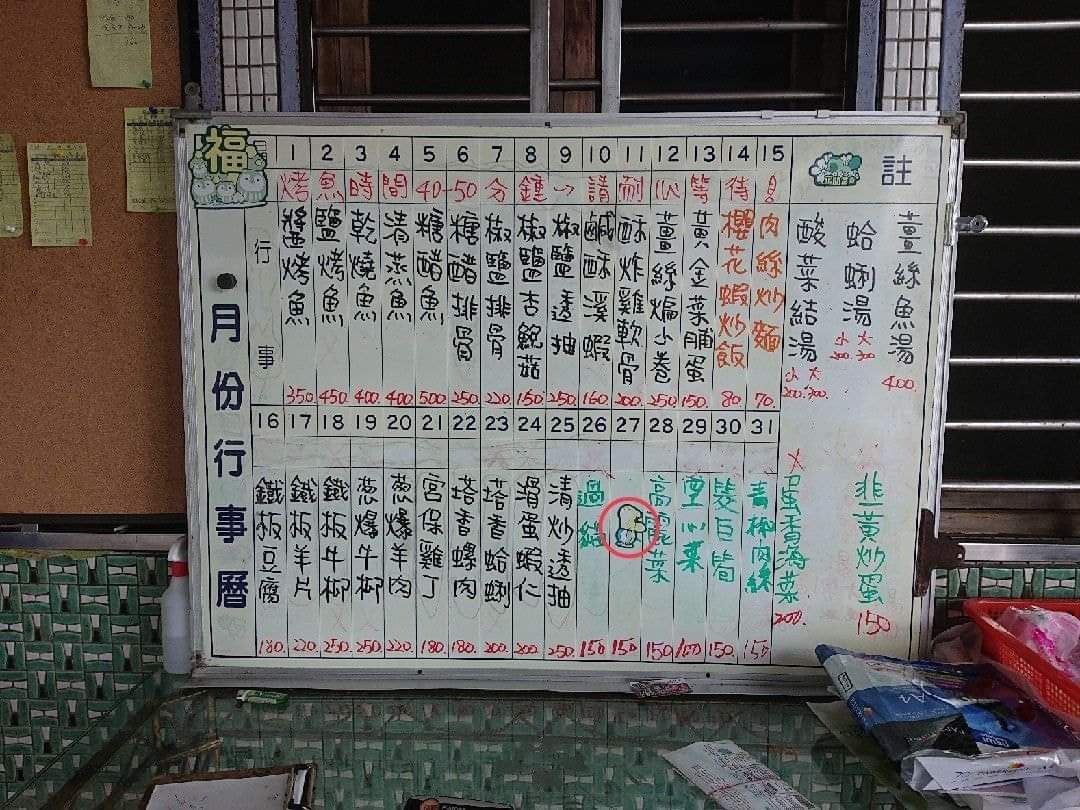 福
月份行事曆
行事
註
1 2 3 4 5 6 7 8 9 10 11 12 13 14 15
烤魚時間40~50分鐘 請耐心等待!
醬烤魚 350.
鹽烤魚 450.
乾燒魚 400.
清蒸魚 400.
糖醋魚 500.
糖醋排骨 250.
椒鹽排骨 220.
椒鹽杏鮑菇 150.
椒鹽透抽 250.
鹹酥溪蝦 160.
酥炸雞軟骨 200.
薑絲焗小卷 250.
黃金菜脯蛋 150.
櫻花蝦炒飯 80.
肉絲炒麵 70.
酸菜結湯 小200. 大300.
蛤蜊湯 小 大300
薑絲魚湯 400.
16 17 18 19 20 21 22 23 24 25 26 27 28 29 30 31
鐵板豆腐 180.
鐵板羊片 220.
鐵板牛柳 250.
蔥爆牛柳 250.
蔥爆羊肉 220.
宮保雞丁 180.
塔香螺肉 180.
塔香蛤蜊 200.
滑蛋蝦仁 200.
清炒透抽 250.
過貓 150
150
高麗菜 150
空心菜
150.
青椒肉絲 150
200.
韭黃炒蛋 150
A4